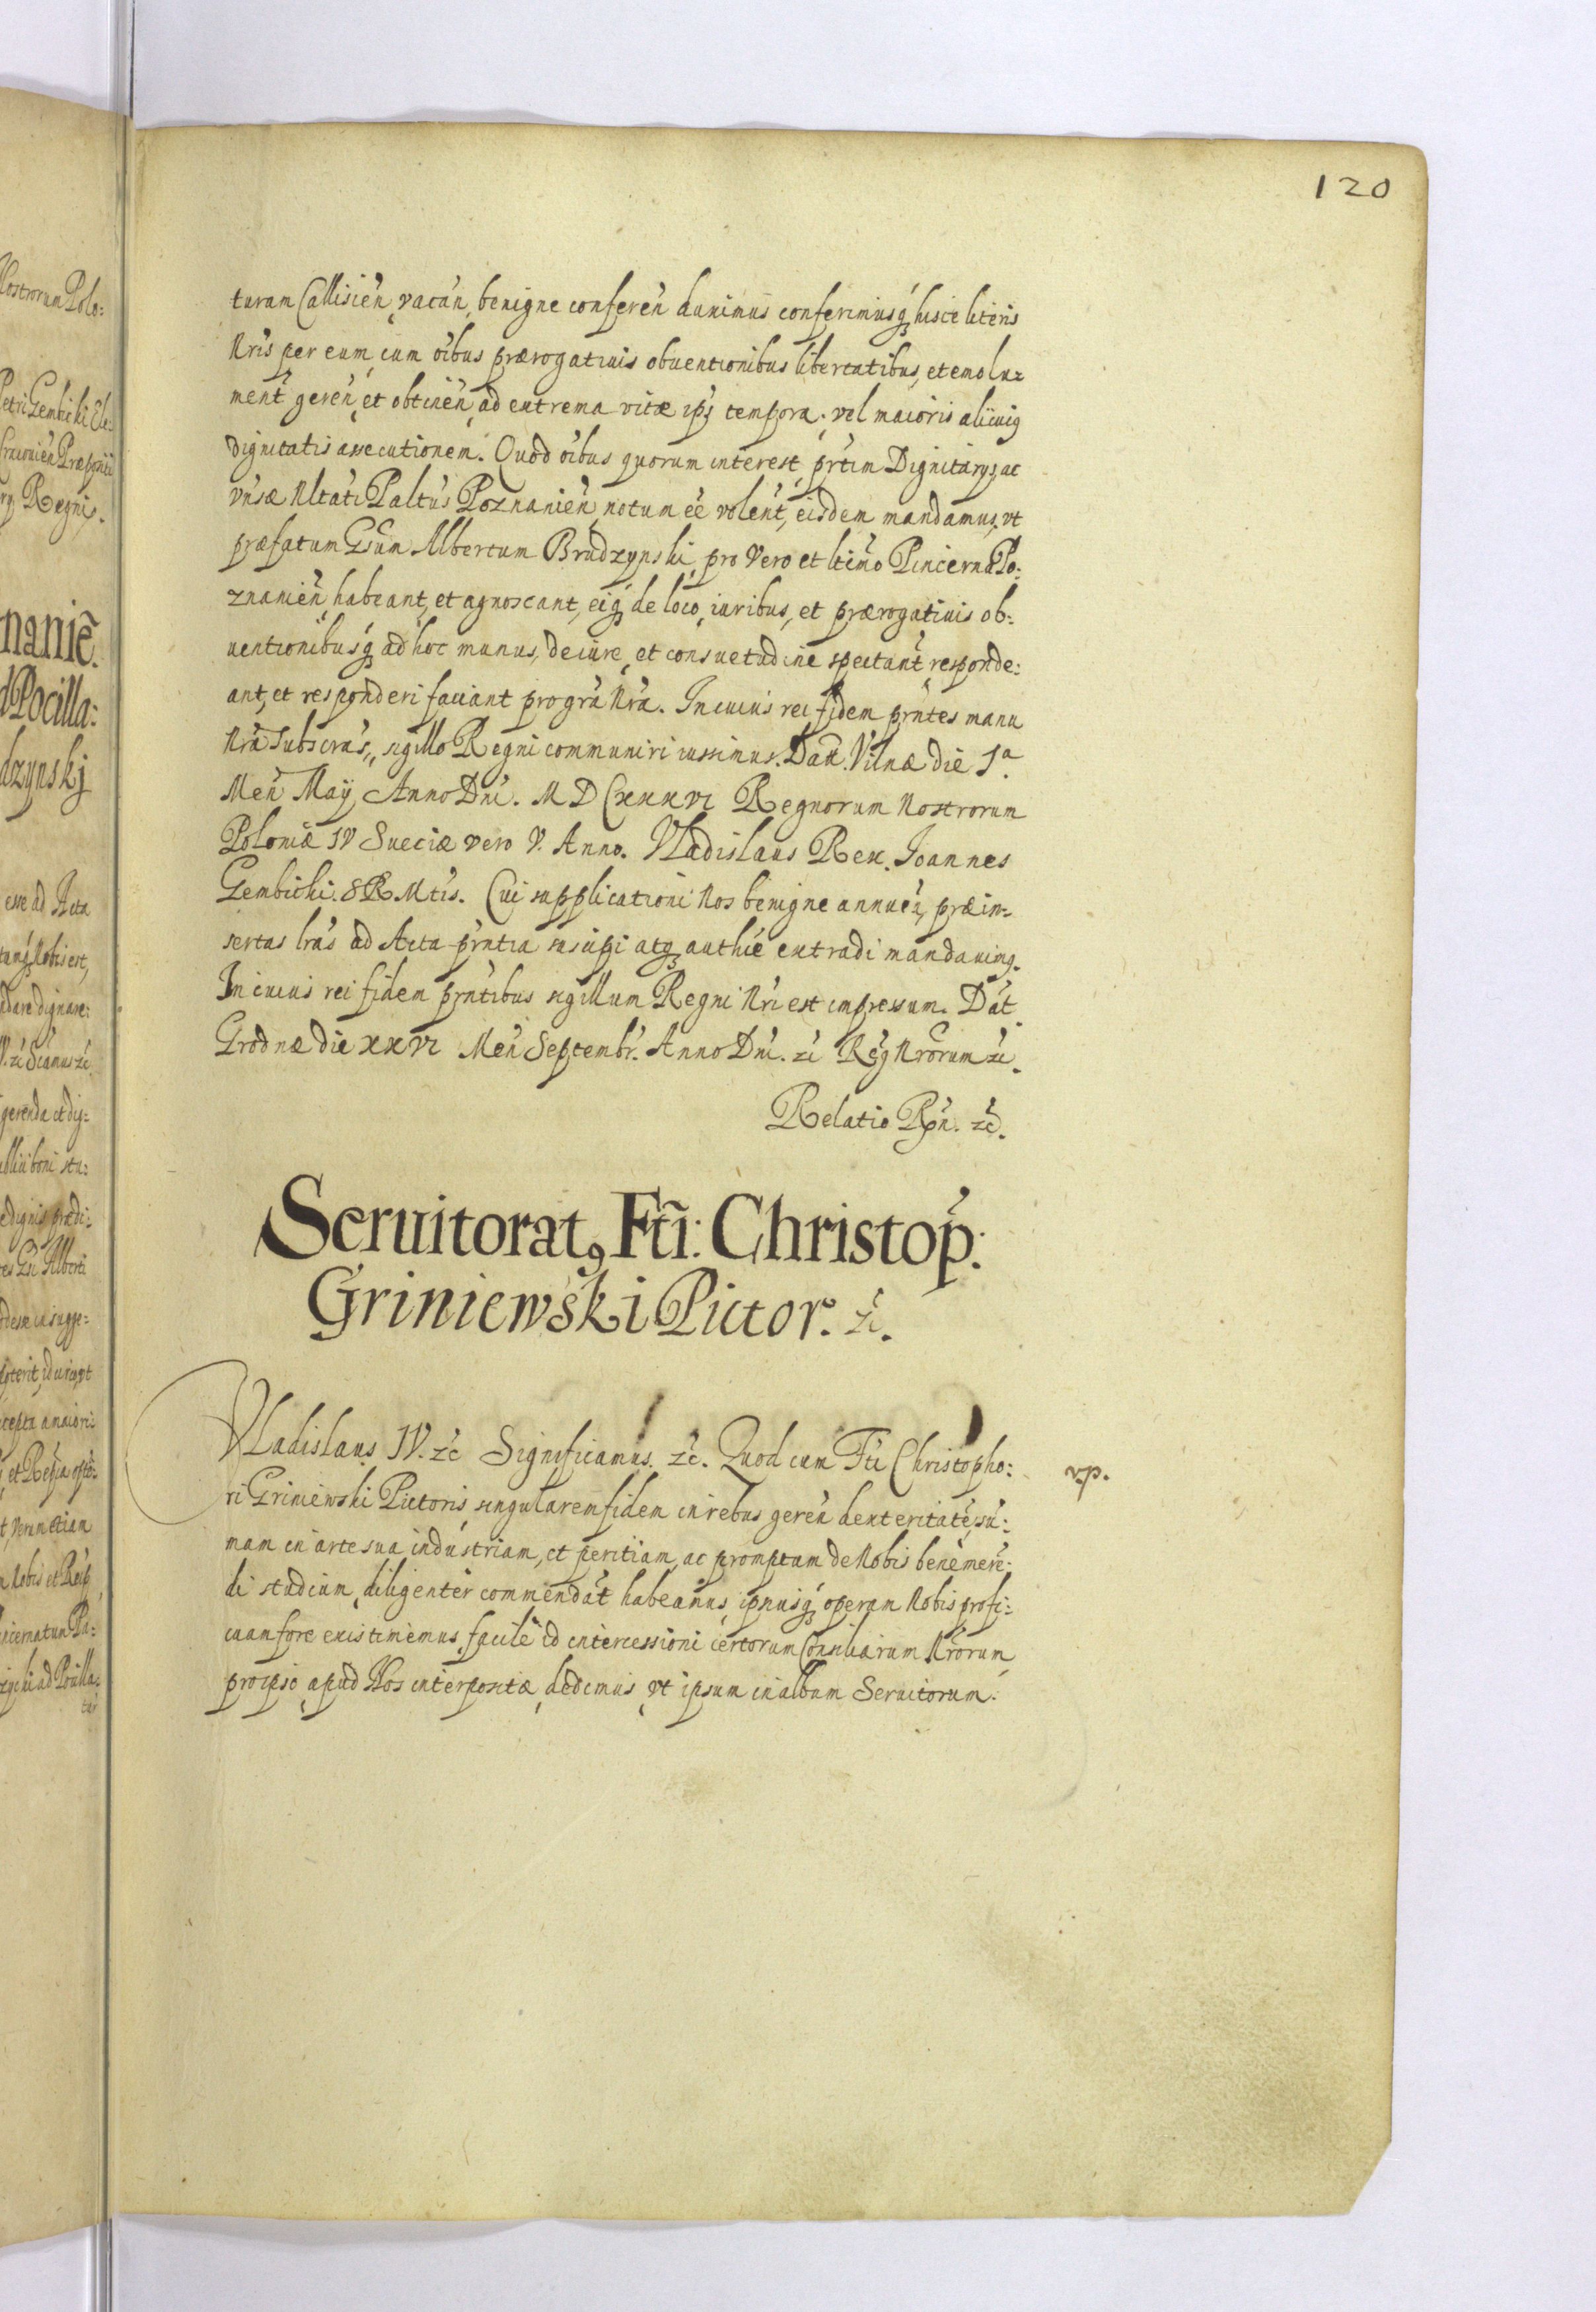 120
turam Callisień, vacań, benigne confereń duximus conferimusq́ hisce literis
Nr̃is per eum, cum oĩbus prærogatiuis obuentionibus libertatibus, et emolu-
ment̃ gereń, et obtineń, ad extrema vitæ ips9 tempora, vel maioris alicuig
dignitatis assecutionem. Quod oĩbus quorum interest, pr̃tim Dignitarys, ac
vńsæ Nltati Paltũs Poznanień, notum eẽ volent̃, eisdem mandamus, vt
præfatum Gs̃um Albertum Brudzynski, pro vero et ltimo Pincerna Po:
znanień, habeant, et agnoscant, eiq́ de loco, iuribus, et prærogatiuis ob:
uentionibusq́ ad hoc munus, de iure, et consuetudine spectant̃, responde:
ant, et responderi faciant pro grã Nrã. In cuius rei fidem pr̃ntes manu
Nrã Subscras̃, sigillo Regni communiri iussimus. Datt. Vilnæ die 1ª.
Meń Maÿ Anno Dnĩ. M D Cxxxvi Regnorum Nostrorum
Poloniæ IV Sueciæ vero V. Anno. Vladislaus Rex. Joannes
Gembicki. S R Mtis. Cui supplicationi Nos benigne annueń, præin-
sertas lrãs ad Acta pr̃ntia suscipi atq authẽ extradi mandauimg.
In cuius rei fidem pr̃ntibus sigillum Regni Nr̃i est impressum. Dat̃
Grodnæ die xxvi Meń Septembr̃. Anno Dnĩ. zc̃ Reg̃ Nrõrum zc̃.
Relatio Rp̃n. zc̃.
Seruitorat9 Fti: Christop̃.
Griniewski Pictor. zc̃.
Vladislaus IV. zc̃ Significamus. zc̃. Quod cum Fti Christopho:
v.p.
ri Griniewski Pictoris, singularem fidem in rebus gereń dexteritatẽ, sũ:
mam in arte sua industriam, et peritiam, ac promptum de Nobis benẽ merẽ:
di studium, diligenter commendat̃ habeamus, ipsiusq́ operam Nobis profi:
cuam fore existimemus, facile id intercessioni certorum Consiliarium Nrõrum,
pro ipso apud Nos interpositæ, dedimus, vt ipsum in album Seruitorum.